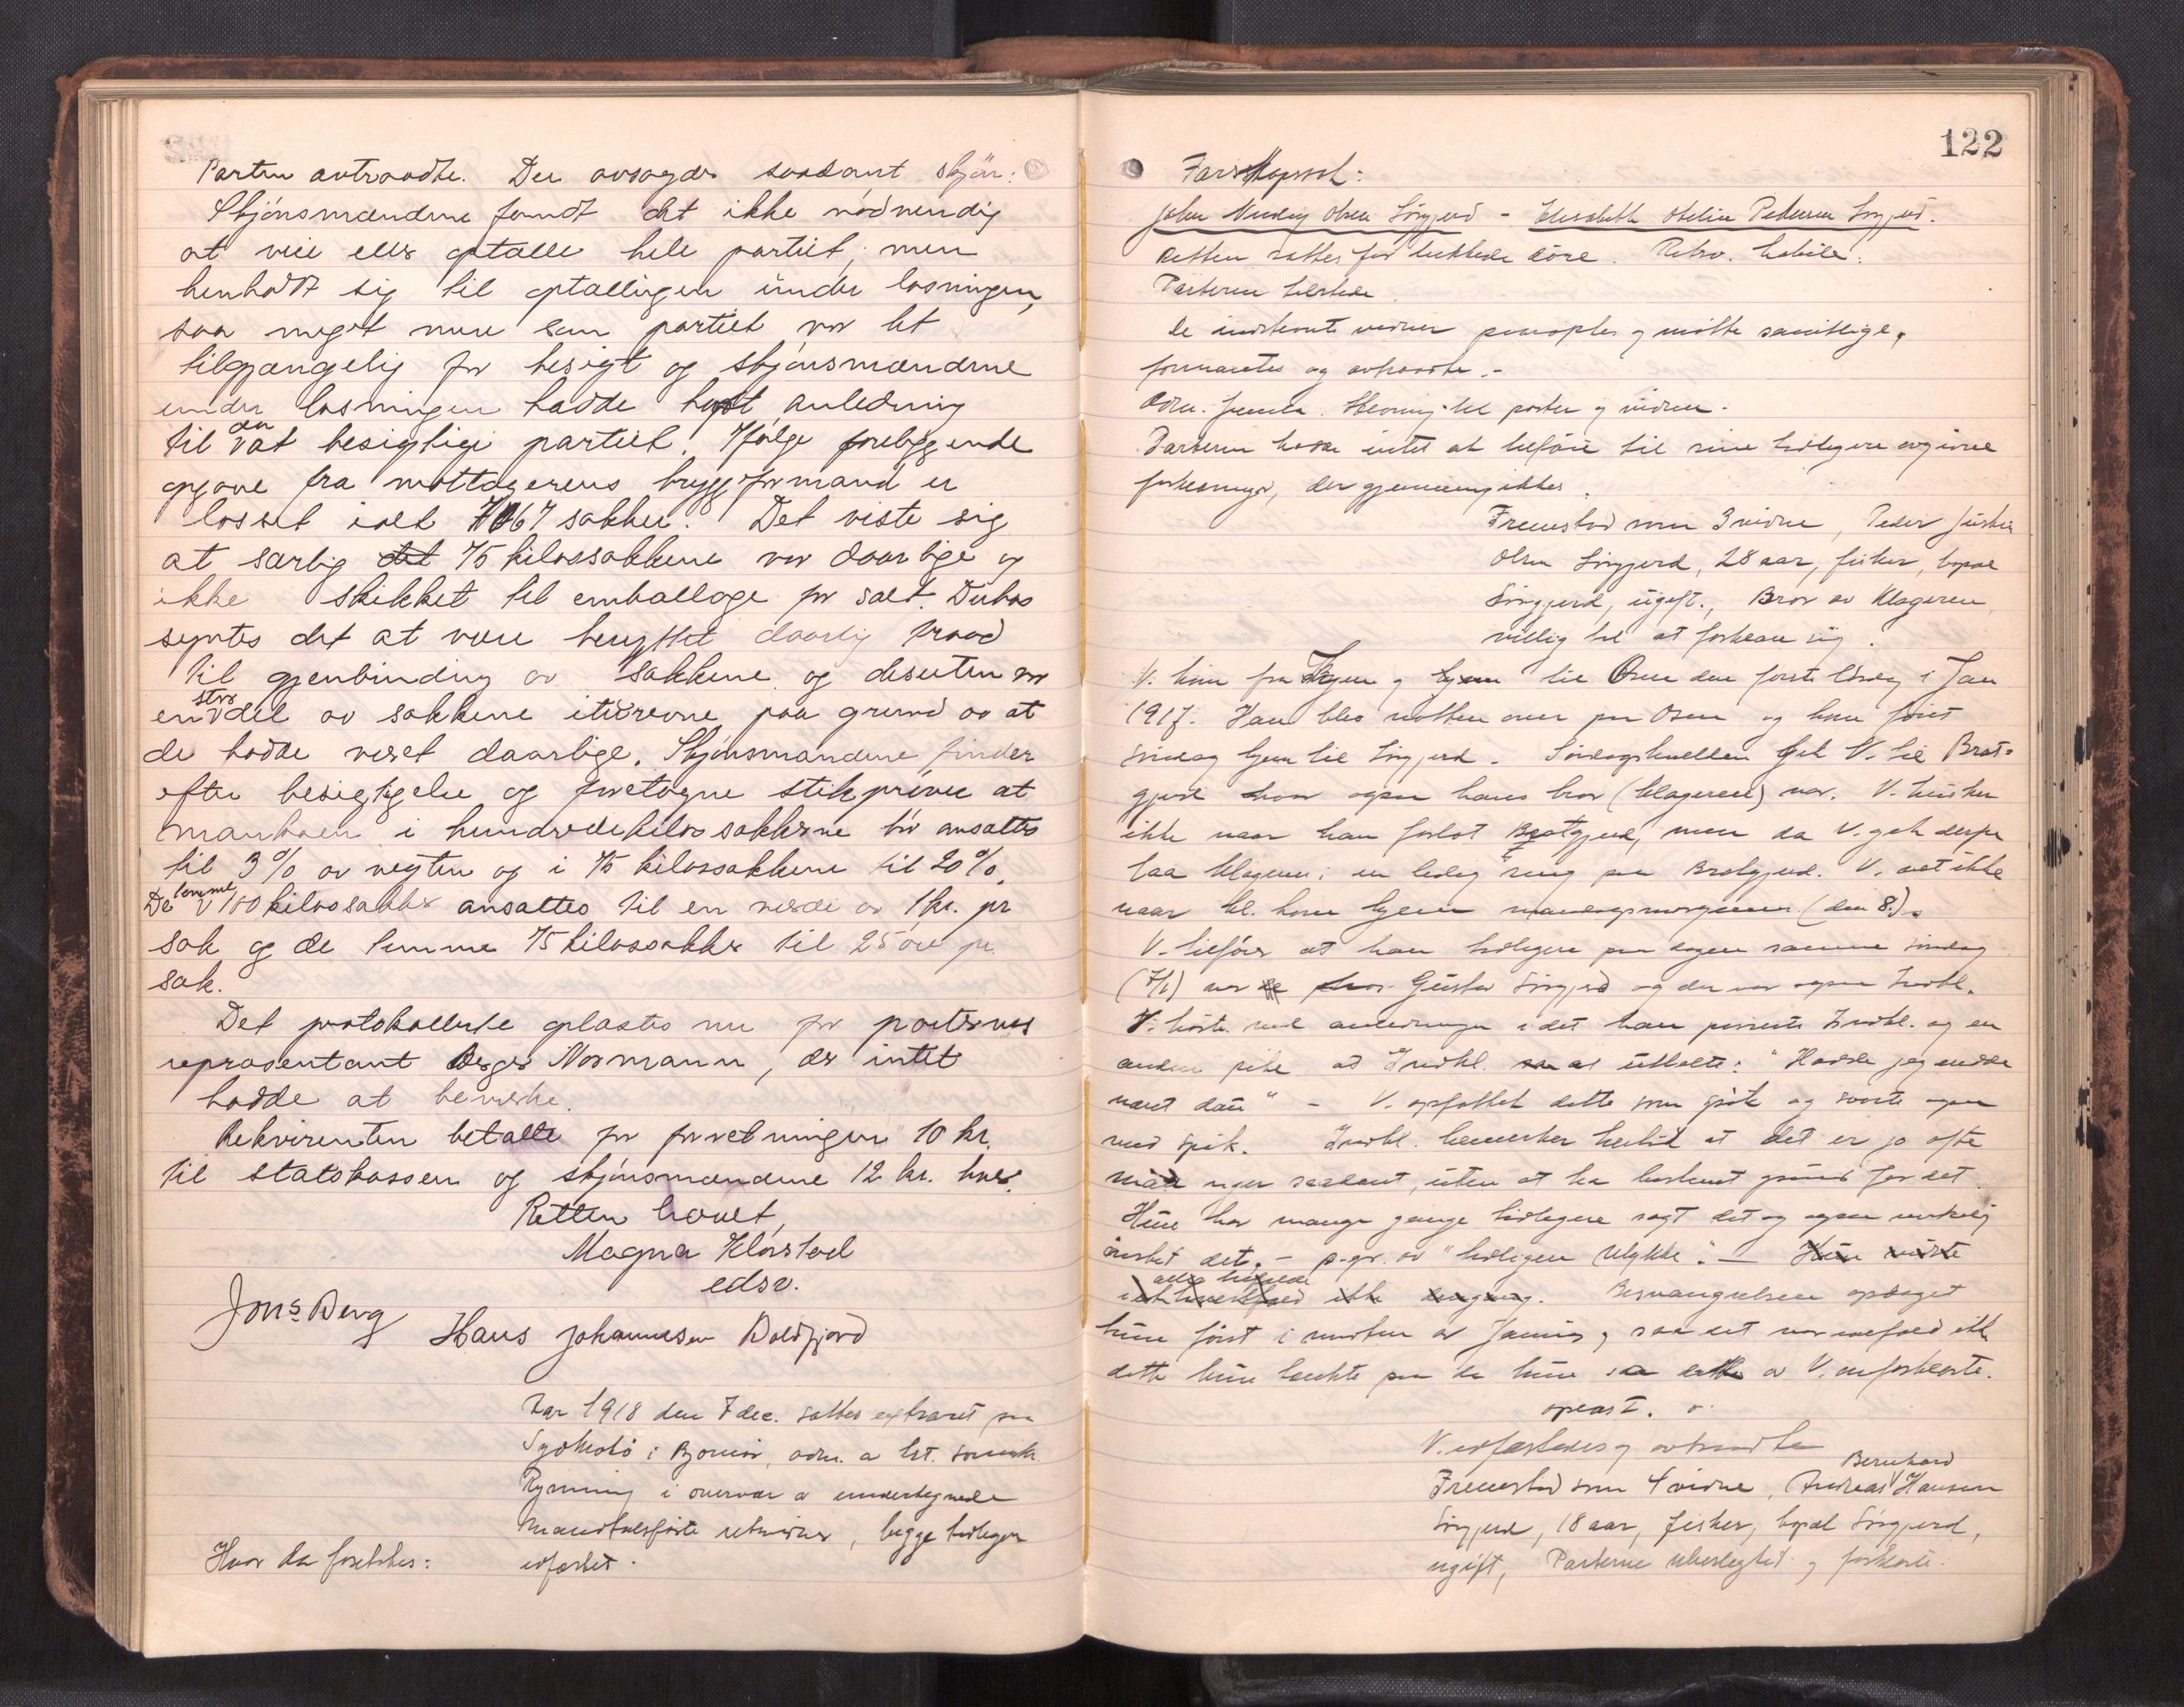 Parten avtraadte. Der avsagdes saadant skjön:
Skjönsmændene fandt det ikke nödvendig
at veie eller optælle hele partiet, men
henholdt sig til optællingen under losningen,
saa meget mere som partiet var let
tilgjængelig for besigt og skjönsmændene
under losningen hadde havt anledning
til at besigtige partiet. Ifölge foreliggende
opgave fra mottagerens bryggeformand er
losset ialt 7067 sækker. Det viste sig
at særlig det 75 kilossækkene var daarlige og
ikke skikket til emballage for salt. Duken
syntes det at være benyttet daarlig traad
til gjenbinding av sækkene og desuten var
en stor del av sækkene iturevne paa grund av at
de hadde været daarlige. Skjönsmændene finder
efter besigtigelse og foretagne stikpröver at
mankoen i hundredekilos sækkene bör ansættes
til 3% av vegten og i 75 kilossækkene til 20%.
De tomme 100 kilossækker ansættes til en værdi av 1 kr. pr
sæk og de tomme 75 kilossækker til 25 öre pr.
sæk.
Det protokollerte oplæstes nu for parternes
repræsentant Normann, der intet
hadde at bemerke.
Rekvirenten betalte for forretningen 10 kr.
til statskassen og skjönsmændene 12 kr. hver.
Retten hævet,
Magna Klörstad
edsv.
Jons Berg
Hans Johannesen Boldfjord
Aar 1918 den 7 dec. sattes extraret paa
i Bjørnör, adm. a
Rynning i overvær av undertegnede
mandtalsförte retsvidner, begge tidligere
Hvor da foretokes:
edfæstet.
122
Farskapssak:
John Olsen Sörgjerd - Elisabeth Otelie Pedersen Sörgjerd.
Retten sattes for lukkede döre. Retsv. habile.
Parterne tilstede.
De indstevnte vidner paaroptes og mötte samtlige,
formanetes og avtraadte.-
Parterne hadde intet at tilföie til sine tidligere avgivne
forklaringer, der gjennemgikkes.
Fremstod som 3 vidne, Peder Justin
Olsen Sörgjerd, 28 aar, fisker, bopæl
Sörgjerd, ugift., Bror av klageren,
villig til at forklare sig.
V. kom fra og hjem til Osen den første lördag i Jan
1917. Han blev natten over paa Osen og kom först
söndag hjem til Sörgjerd. Söndagskvellen gik V. til Brat-
gjerd hvor ogsaa hans bror (klageren) var. V. husker
ikke naar han forlot Bratgjerd, men da V. gik derfra
laa klageren i en ledig seng paa Bratgjerd. V. vet ikke
naar kl. kom hjem mandagsmorgenen (den 8.).
V. tilföier at han tidligere paa dagen samme söndag
(7/1) var hos Gustav Sörgjerd og der var ogsaa Indkl.
V. hörte ved anledningen idet han passerte Indkl. og en
anden pike at Indkl. uttalte: "Hadde jeg endda
været dau" - V. opfattet dette som spök og svarte ogsaa
med spök. Indkl. bemerker hertil at det er jo ofte
man siger saadant, uten at ha bestemt grund for det.
Hun har mange ganger tidligere sagt det og ogsaa virkelig
önsket det, - p.gr. av "tidligere Ulykke". - Hun
Besvangrelsen opdaget
hun först i midten av Januar, saa det var iallefald ikke
dette hun tænkte paa da hun sa dette av V. omforklarte.
oplæst. v.
V. edfæstedes og avtraadte
Fremstod som 4 vidne, Andreas Bernhard Hansen
Sörgjerd, 18 aar, fisker, bopæl Sörgjerd,
ugift, Parterne ubeslegtet og forklarte: